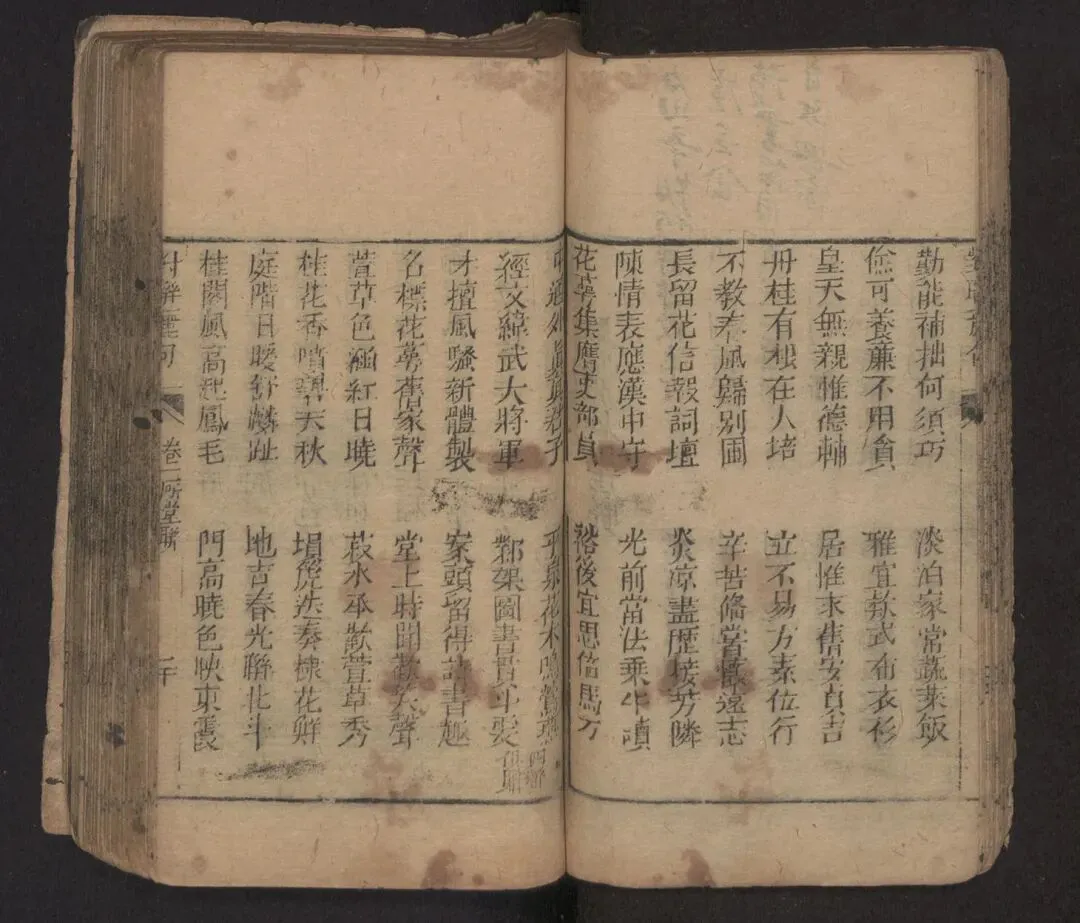 勤能補拙何須巧
淡泊家常蔬菜飯
儉可養廉不用貪
雅宜款式布衣衫
皇天無親惟德輔
居惟求舊安貞吉
丹桂有根在人培
立不易方素位行
不教春風歸別圃
辛苦備嘗懷遠志
長留花信報詞壇
炎凉盡歷接芳隣
陳情表應漢中守
光前當法乘牛讀
花萼集膺吏部員
裕後宜思倚馬才
經文緯武大將軍
鄴架圖書
才擅風騷新體製
案頭留得詩書趣
名標花萼舊家聲
堂上時聞歡笑聲
萱草色涵紅日曉
菽水承歡萱草秀
桂花香噴碧天秋
塤箎迭奏棣花鮮
庭階日暖舒麟趾
地吉春光聯北斗
桂闕風高起鳳毛
門高曉色映東震
卷二 听堂聯
二十